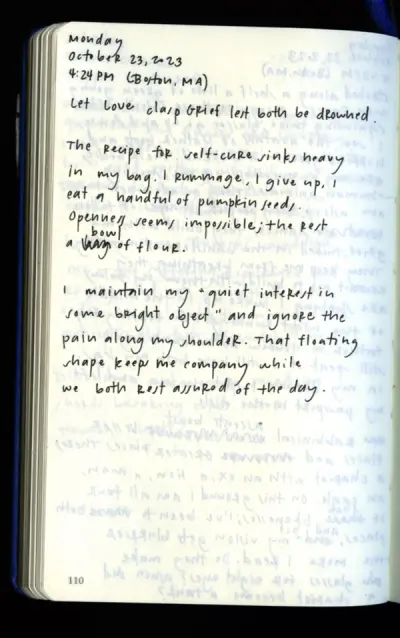 Monday
October 23, 2023
4:24 PM (Boston, MA)
Let Love clasp Grief lest both be drowned.
The recipe for self-cure sinks heavy
in my bag. I rummage, I give up, I
eat a handful of pumpkin seeds.
Openness seems impossible; the rest
bowl
a bag of flour.
I maintain my "quiet interest in
some bright object" and ignore the
pain along my shoulder. That floating
shape keeps me company while
we both rest assured of the day.
110